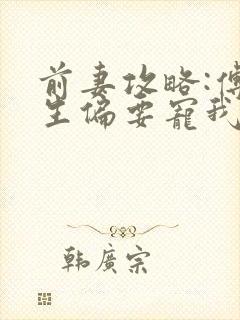 前妻攻略:傅
生偏要寵我
韓廣宗